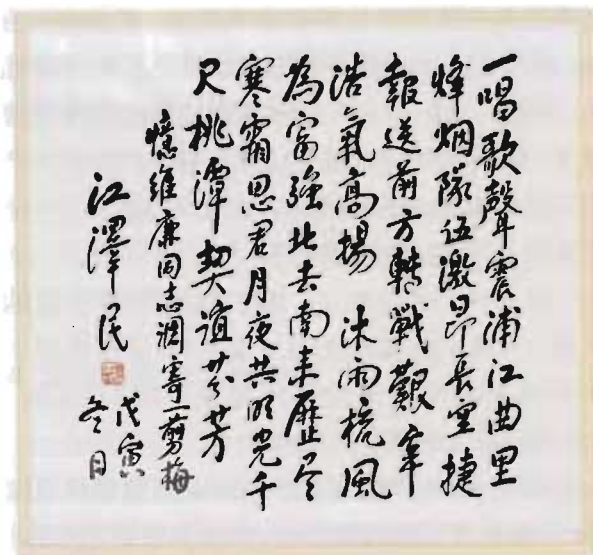 一唱歌聲震浦江曲里
烽烟隊伍激昂長空捷
報送前方轉戰艱辛
浩氣高揚 沐雨梳風
為富強北去南来歷尽
寒霜思君月夜共明光千
尺桃潭契誼芬芳
憶維廉同志調寄一剪梅
江澤民
戊寅
冬月